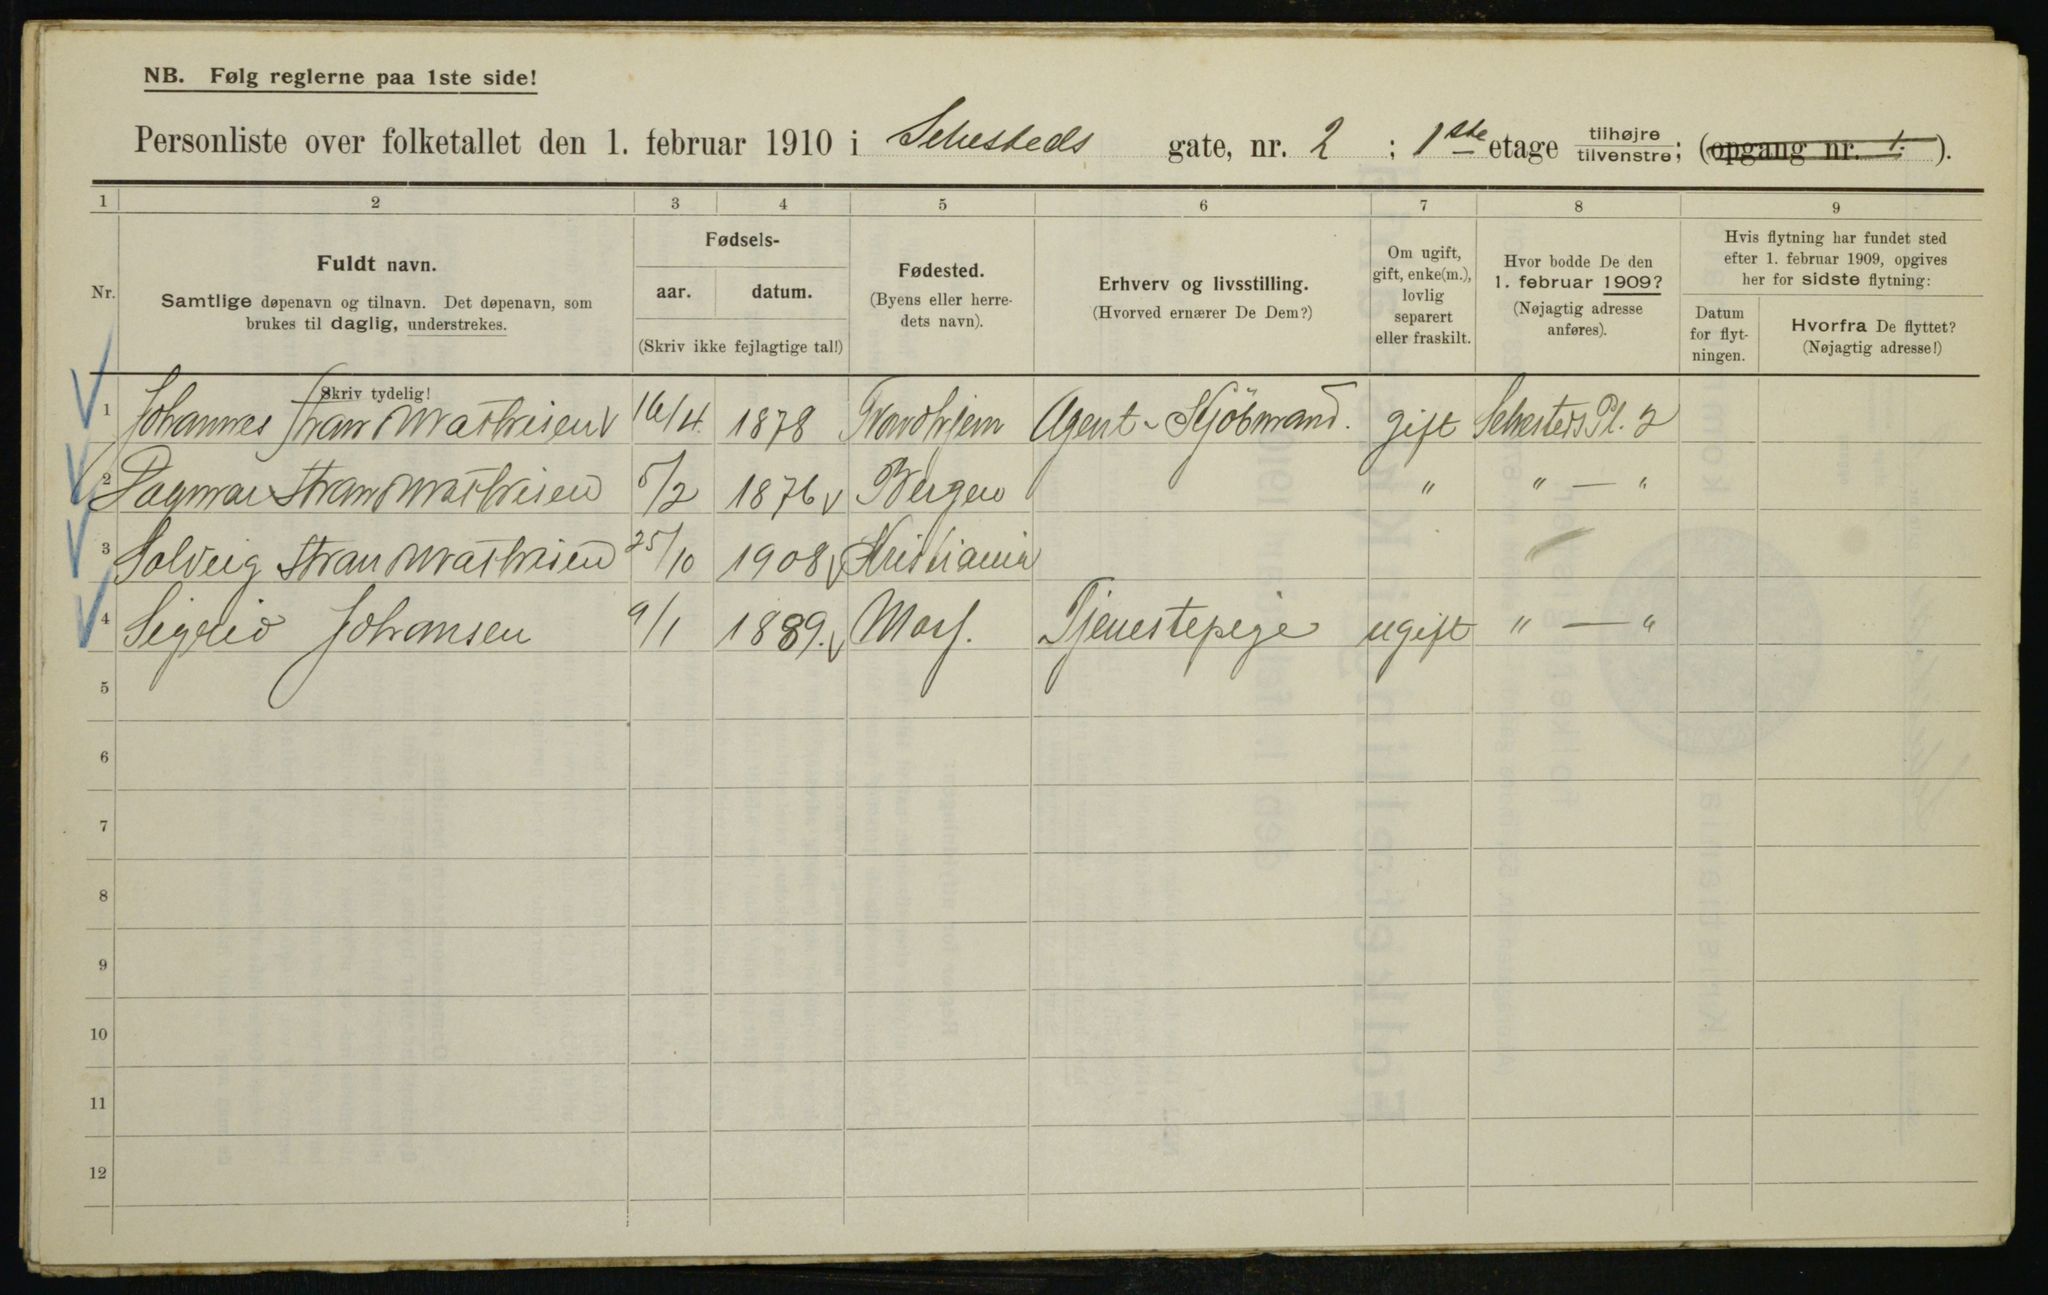 NB. Følg reglerne paa 1ste side!
Personliste over folketallet den 1. februar 1910 i Sehesteds gate, nr. 2 ; 1ste etage tilhøjre tilvenstre; (opgang nr. 1. ).
1 2 3 4 5 6 7 8 9
Nr.
Fuldt navn.
Samtlige døpenavn og tilnavn. Det døpenavn, som
brukes til daglig, understrekes.
Skriv tydelig!
Fødsels-
aar. datum.
(Skriv ikke fejlagtige tal!)
Fødested.
(Byens eller herre-
dets navn).
Erhverv og livsstilling.
(Hvorved ernærer De Dem?)
Om ugift,
gift, enke(m.),
lovlig
separert
eller fraskilt.
Hvor bodde De den
1. februar 1909?
(Nøjagtig adresse
anføres).
Hvis flytning har fundet sted
efter 1. februar 1909, opgives
her for sidste flytning:
Datum
for flyt-
ningen.
Hvorfra De flyttet?
(Nøjagtig adresse!)
1 Johannes Strand Mathisen 16/4 1878 Trondhjem Agent - Kjöbmand. gift Sehesteds Pl. 2
2 Dagmar Strand Mathisen 5/2 1876 Bergen " " — "
3 Solveig Strand Mathisen 25/10 1908 Kristiania "
4 Sigrid Johansen 9/1 1889. Moss. Tjenestepige ugift " — "
5
6
7
8
9
10
11
12